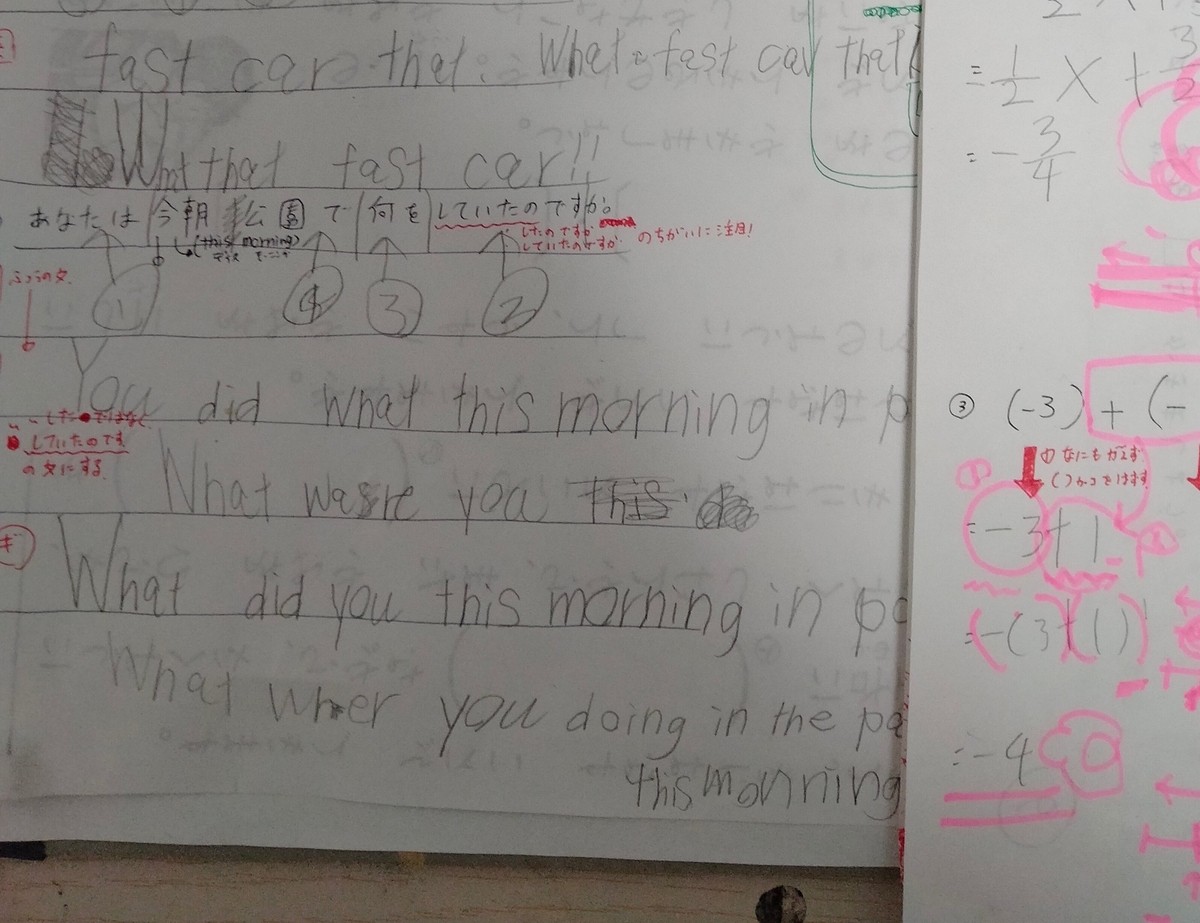 fast car that. What a fast car that
What that fast car!!
あなたは 今朝 公園 で 何を していたのですか。
(this morning)
したのですか
していたのですか のちがいに注目!
ふつうの文
① ④ ③ ②
You did what this morning in p
したではなく
していたのです
の文にする
What were you this
What did you this morning in pa
What wher you doing in the pa
this monrning
= 1/2 × + 3/2
= - 3/4
③ (-3) + (-
① なにもかえず
( )かっこをはずす
= -3 + 1
= -(3+1)
= -4